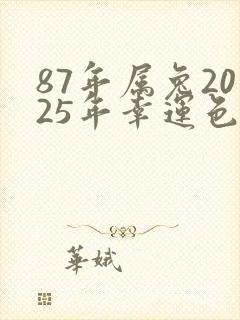 87年属兔20
25年幸运色
華娥